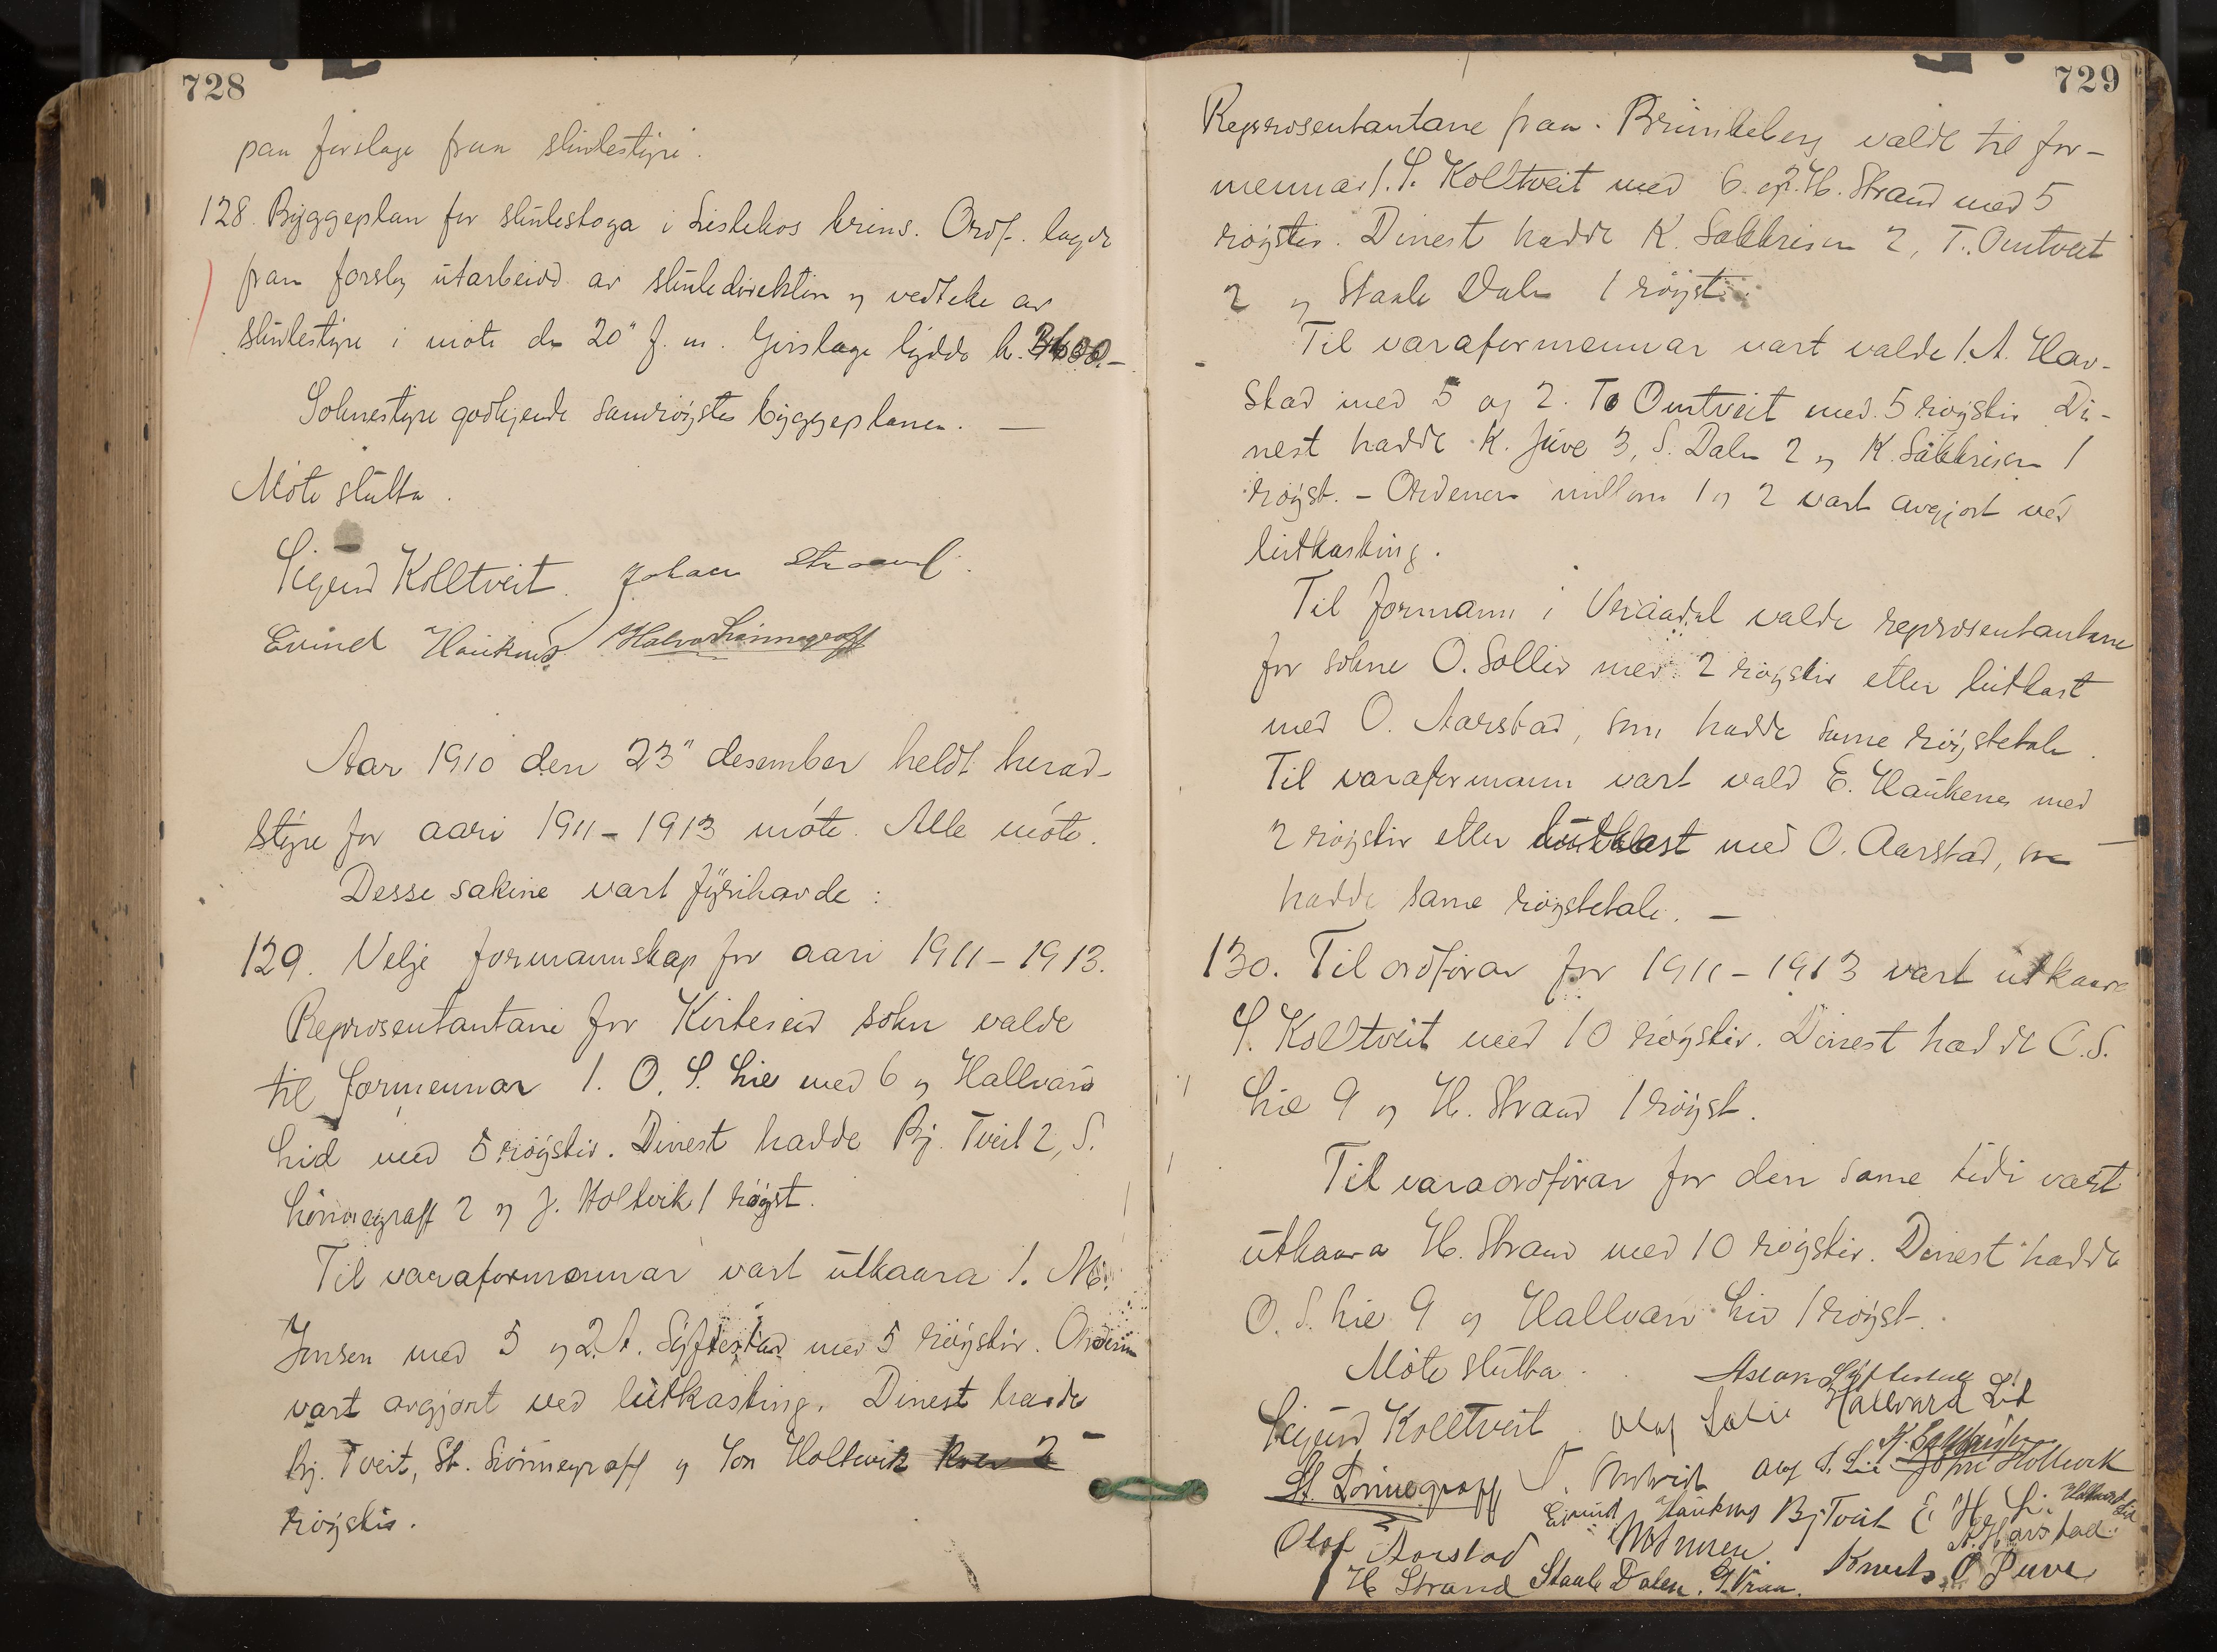 728
paa forslage fraa skulestyre.
128. Byggeplan for skulestoga i Listekos krins. Ordf. lagde
fram forslag utarbeidd av skuledirektören og vedteke av
skulestyre i möte den 20" f. m. Yverslage lydde kr.
Soknestyre godkjende samröystes byggeplanen. —
Möte slutta.
Sigurd Kolltveit. Johan Strand.
Eivind Haukenes Halvor Lönnegraff
Aar 1910 den 23" desember heldt herad-
styre for aari 1911 – 1913 möte. Alle mötte.
Desse sakine vart fyrihavde:
129. Velje formannskap for aari 1911 – 1913.
Representantane for Kviteseid sokn valde
til formennar 1. O. S. Lie med 6 og Hallvard
Lid med 5 röyster. Dinest hadde Bj. Tveit 2, S.
Lönnegraff 2 og J. Holtvik 1 röyst.
Til varaformennar vart utkaara 1. M.
Jensen med 5 og 2. A. Syftestad med 5 röyster. Ordenen
vart avgjort ved lutkasting. Dinest hadde
Bj. Tveit, St. Lönnegraff og Jon Holtvik kver 2
röyster.
729
Representantane fraa Brunkeberg valde til for-
mennar 1. S. Kolltveit med 6 og 2. H. Strand med 5
röyster. Dinest hadde K. Sakkrisen 2, T. Omtveit
2 og Staale Dalen 1 röyst.
Til varaformennar vart valde 1. A. Hav-
stad med 5 og 2. To Omtveit med 5 röyster. Di-
nest hadde K. Juve 3, S. Dalen 2 og K. Sakkrisen 1
röyst. – Ordenen millom 1 og 2 vart avgjort ved
lutkasting.
Til formann i Vraadal valde representantane
for sokne O. Sollid med 2 röyster etter lutkast
med O. Aarstad, som hadde same röystetale.
Til varaformann vart vald E. Haukenes med
2 röyster etter lutkast med O. Aarstad, som
hadde same röystetale. —
130. Til ordförar for 1911 – 1913 vart utkaara
S. Kolltveit med 10 röyster. Dinest hadde O. S.
Lie 9 og H. Strand 1 röyst.
Til varaordförar for den same tidi vart
utkaara H. Strand med 10 röyster. Dinest hadde
O. S. Lie 9 og Hallvard Lid 1 röyst.
Möte slutta. Aslak Syftestad
Sigurd Kolltveit. Olaf Hallvard Lid
St. Lönnegraff T. Omtveit Olaf S. Lie John Holtvik
Eivind Haukenes Bj Tveit E H Li
Olaf Aarstad M Jensen. A. Havstad.
H Strand Staale Dalen. G. Vraa. Knut O Juve